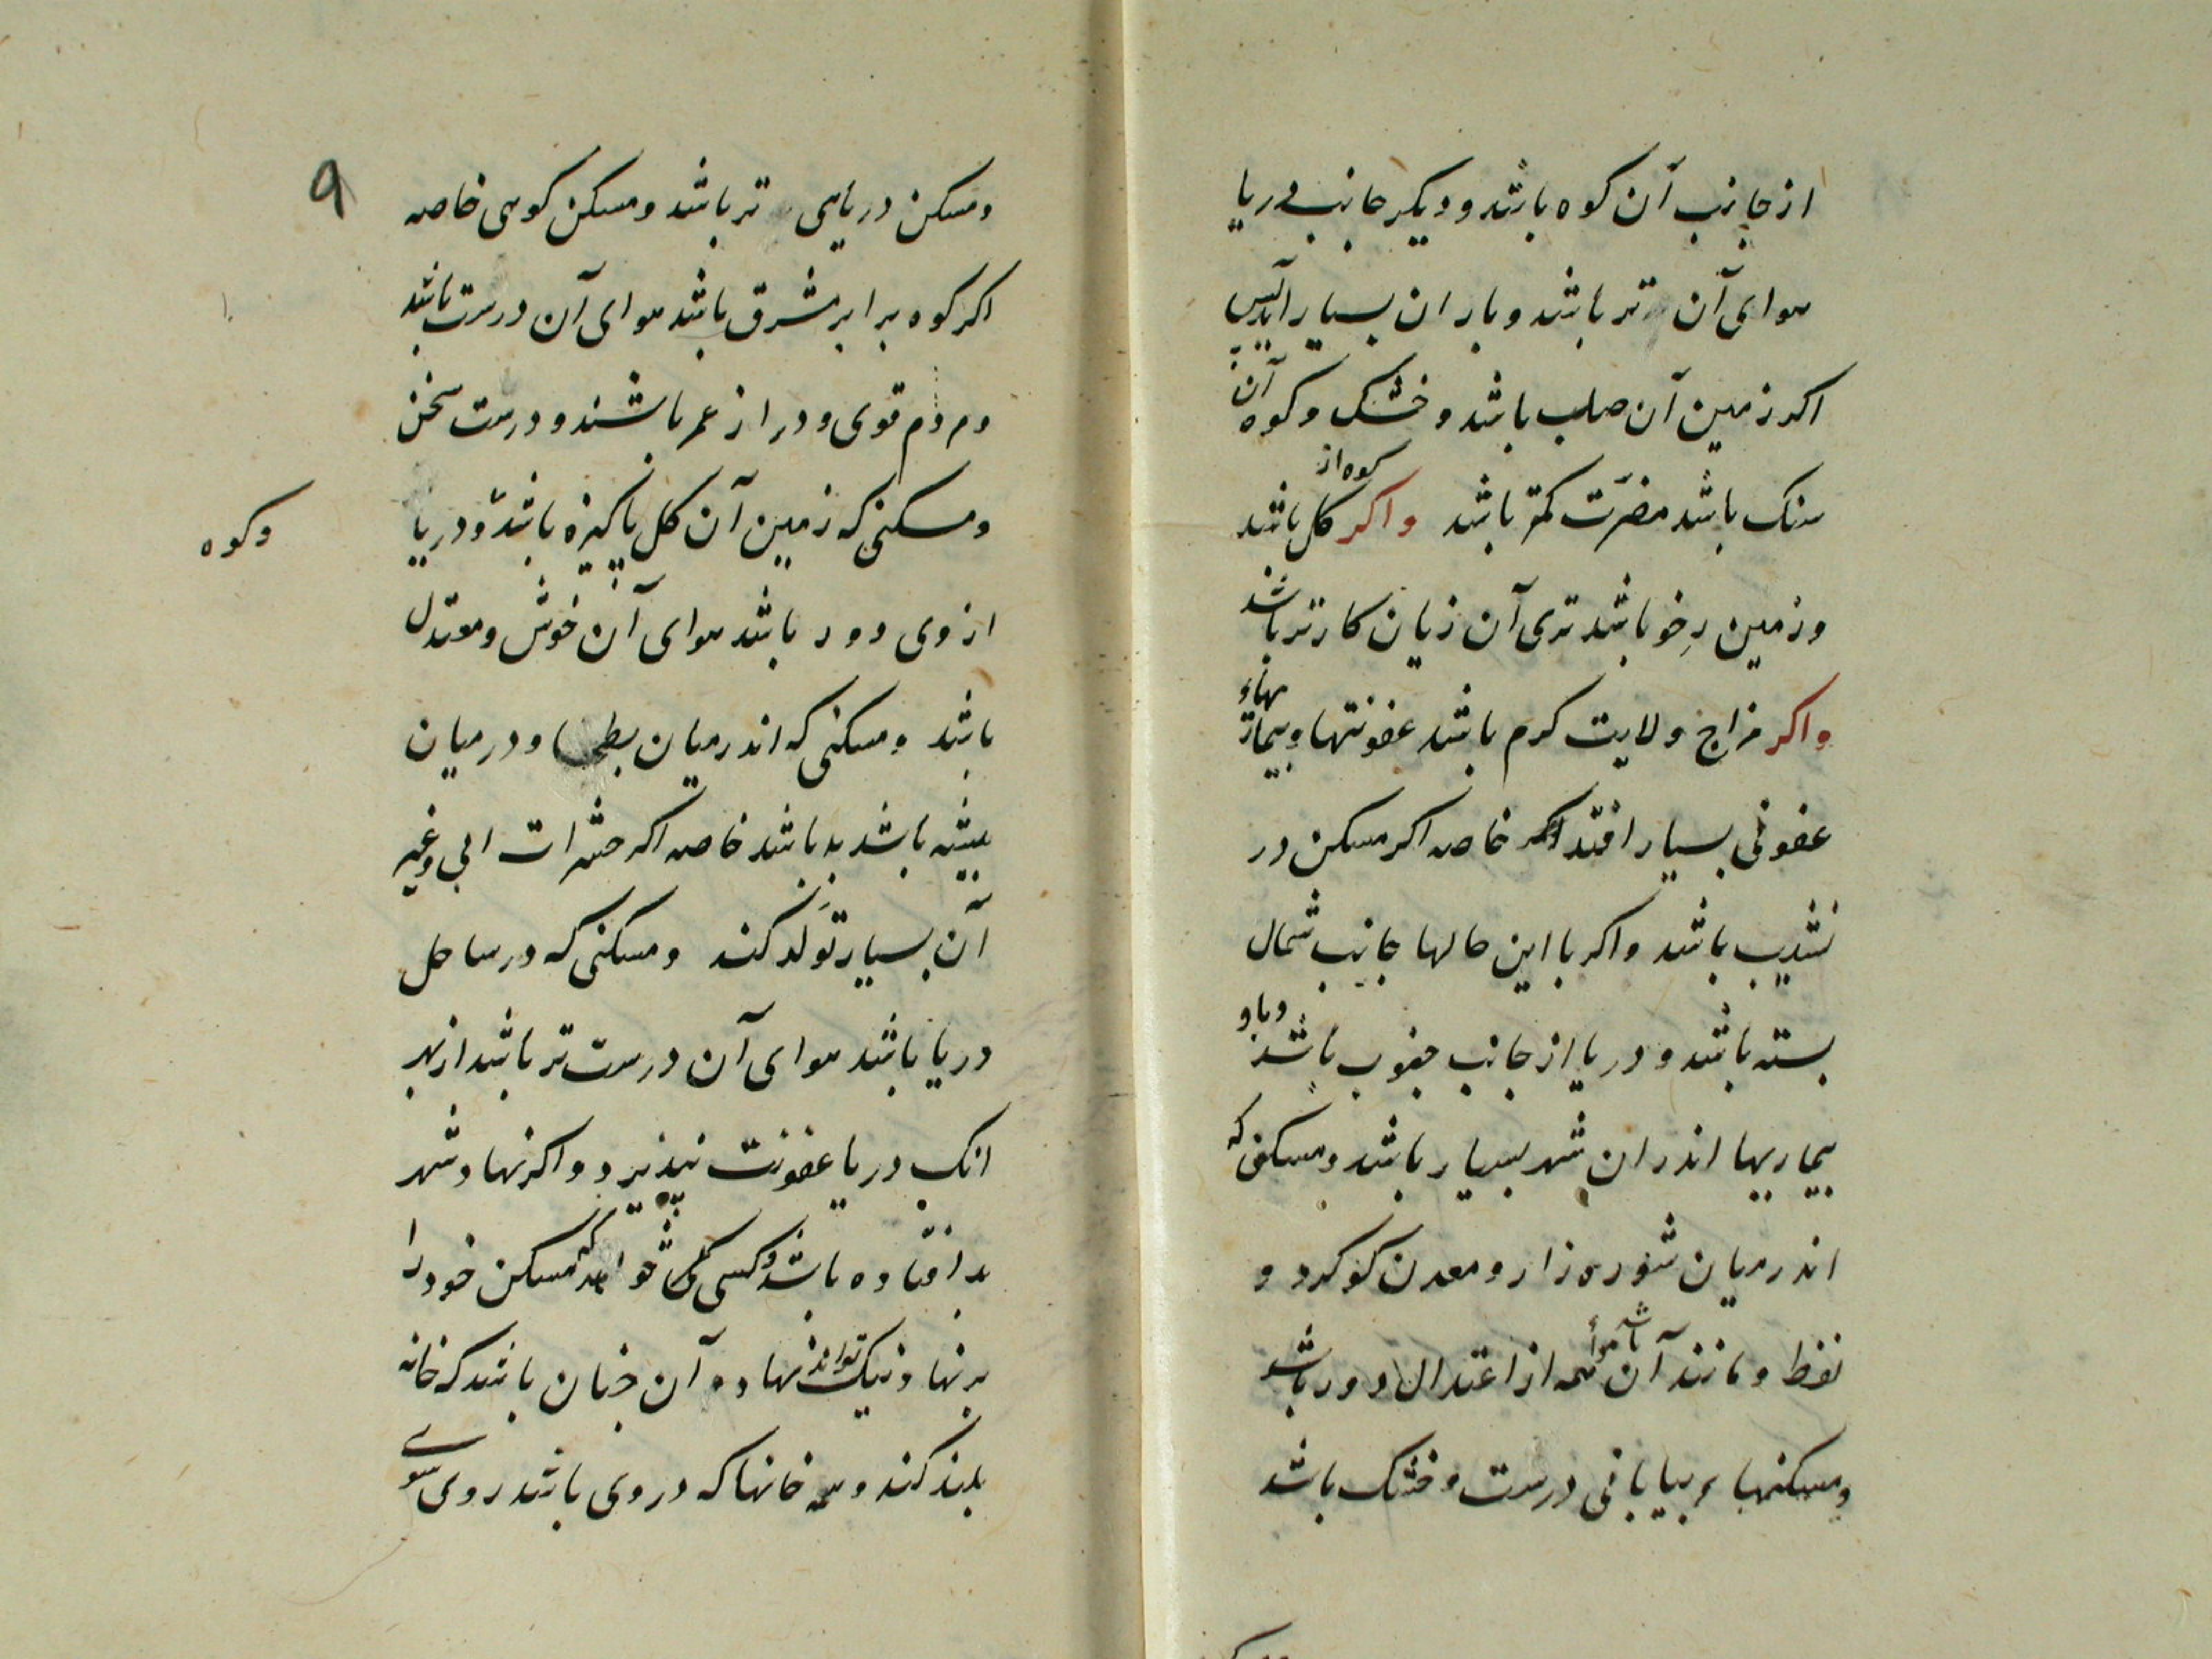 از جانب آن کوه باشد و دیکر جانب دریا
هوای آن تر باشد و باران بسیار آید پس
اکر زمین آن صلب باشد و خشک و کوه آن
سنک باشد مضرّت کمتر باشد واکر کوه از کل باشد
وزمین رِخو باشد تری آن زیان کارتر باشد
واکر مزاج ولایت کرم باشد عفونتها و بیماریهاء
عفونی بسیار افتد خاصه اکر مسکن در
نشیب باشد واکر با این حالها جانب شمال
بسته باشد و دریا از جانب جنوب باشد وبا و
بیماریها اندران شهر بسیار باشد ومسکنی که
اندر میان شوره زار و معدن کوکرد و
نفط و مانند آن باشد هواء همه از اعتدال دور باشد
ومسکنهاء بیابانی درست و خشک باشد
۹
ومسکن دریایی تر باشد ومسکن کوهی خاصه
اکر کوه برابر مشرق باشد هوای آن درست باشد
ومردم قوی و دراز عمر باشند و درست سخن
ومسکنی که زمین آن کل پاکیزه باشد و دریا
وکوه
از وی دور باشد هوای آن خوش ومعتدل
باشد ومسکنی که اندر میان بطیحها و درمیان
بیشه باشد بد باشد خاصه اکر حشرات ابی وغیر
آن بسیار تَولّد کند ومسکنی که در ساحل
دریا باشد هوای آن درست تر باشد از بهر
انک دریا عفونت نپذیرد واکر نهاد شهر
بد افتاده باشد وکسی خواهد که مسکن خود را
بر نهاد نیک تواند نهاده آن چنان باشد که خانه
بلند کند وهمه خانها که در وی باشد روی سوے